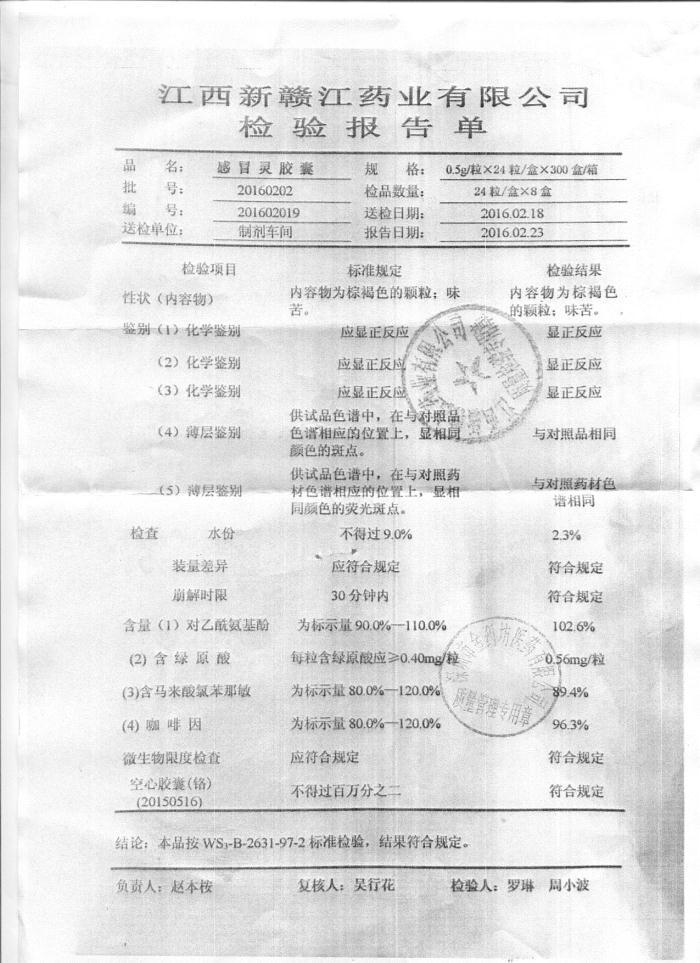 江西新赣江药业有限公司
检验报告单
品　　名： 感冒灵胶囊　规　　格： 0.5g/粒×24粒/盒×300盒/箱
批　　号： 20160202　检品数量： 24粒/盒×8盒
编　　号： 201602019　送检日期： 2016.02.18
送检单位： 制剂车间　报告日期： 2016.02.23
检验项目　标准规定　检验结果
性状（内容物）　内容物为棕褐色的颗粒；味　内容物为棕褐色
苦。　的颗粒；味苦。
鉴别（1）化学鉴别　应显正反应　显正反应
（2）化学鉴别　应显正反应　显正反应
（3）化学鉴别　应显正反应　显正反应
供试品色谱中，在与对照品
（4）薄层鉴别　色谱相应的位置上，显相同　与对照品相同
颜色的斑点。
供试品色谱中，在与对照药　与对照药材色
（5）薄层鉴别　材色谱相应的位置上，显相　谱相同
同颜色的荧光斑点。
检查　水份　不得过9.0%　2.3%
装量差异　应符合规定　符合规定
崩解时限　30分钟内　符合规定
含量（1）对乙酰氨基酚　为标示量90.0%—110.0%　102.6%
(2) 含绿原酸　每粒含绿原酸应≥0.40mg/粒　0.56mg/粒
(3)含马来酸氯苯那敏　为标示量80.0%—120.0%　89.4%
(4) 咖啡因　为标示量80.0%—120.0%　96.3%
微生物限度检查　应符合规定　符合规定
空心胶囊(铬)　不得过百万分之二　符合规定
(20150516)
结论：本品按WS₃-B-2631-97-2标准检验，结果符合规定。
负责人：赵本桉　复核人：吴行花　检验人：罗琳　周小波
质量管理专用章